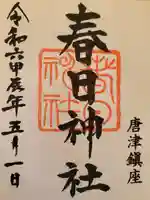 唐津鎮座
春日神社
令和六甲辰年五月一日